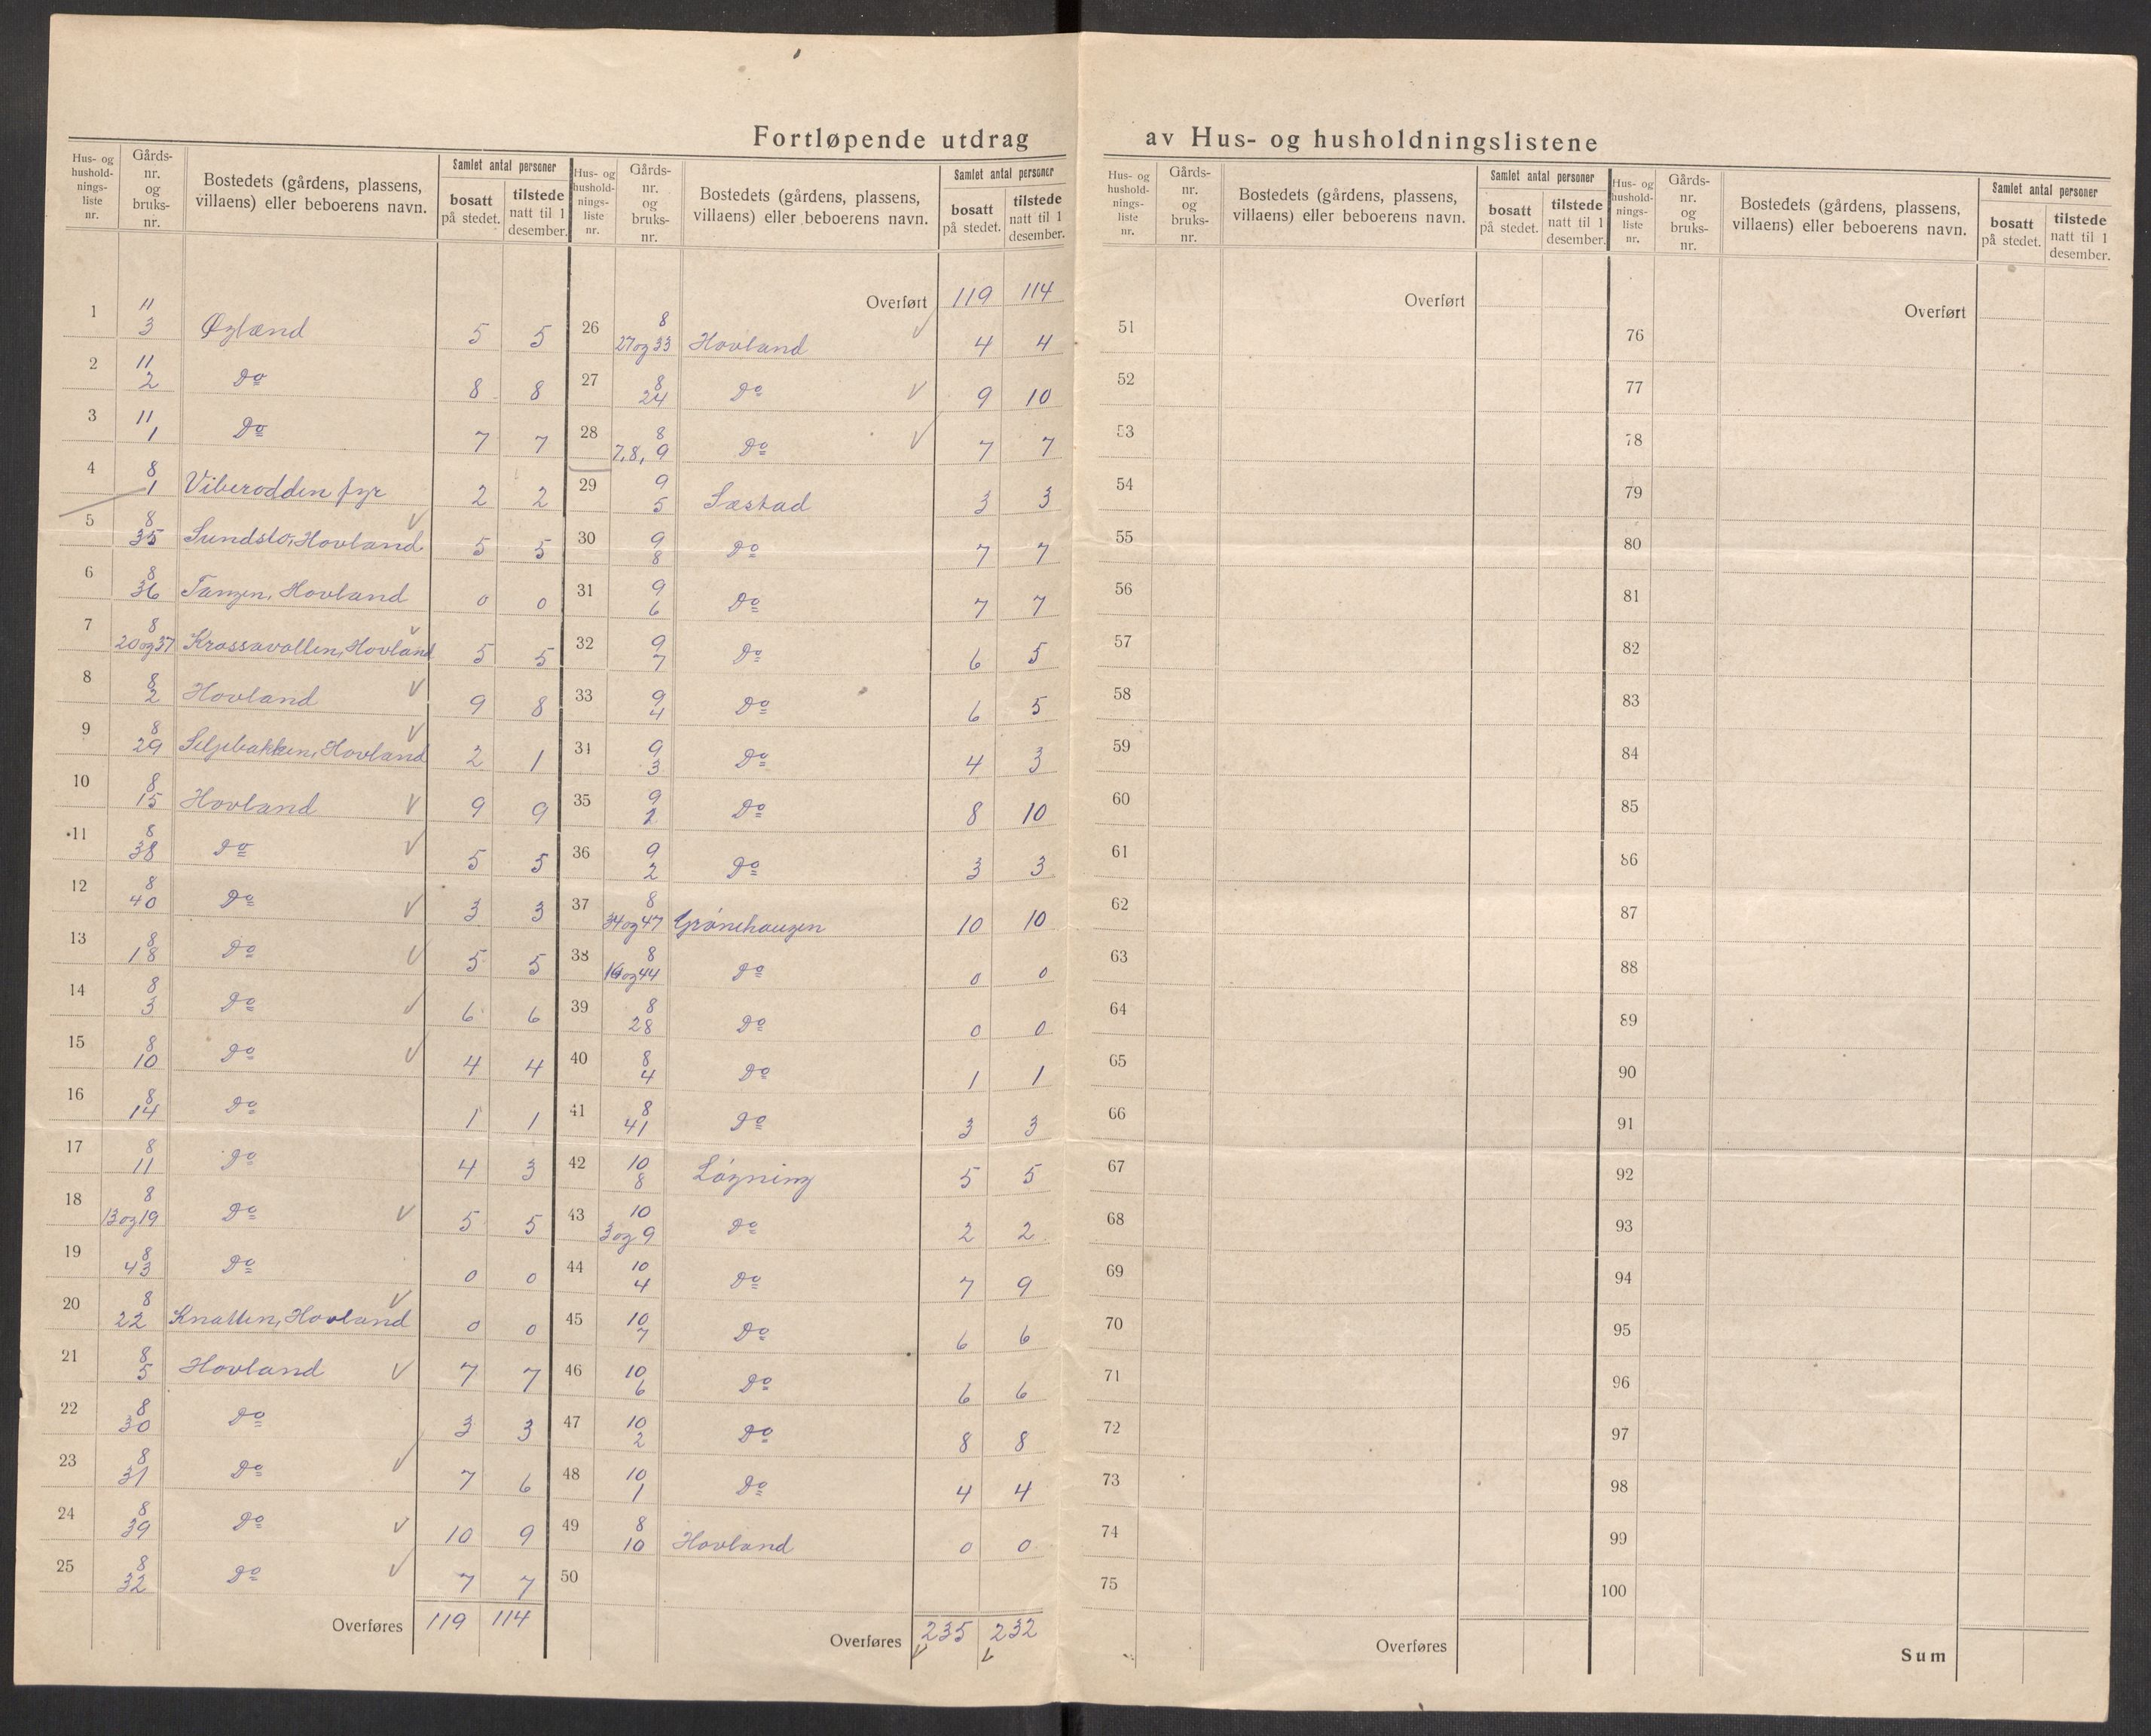 Fortløpende utdrag av Hus- og husholdningslistene
Hus- og hushold- nings- liste nr. | Gårds- nr. og bruks- nr. | Bostedets (gårdens, plassens, villaens) eller beboerens navn. | Samlet antal personer | bosatt på stedet. | tilstede natt til 1 desember.
1 11 3 Øglænd 5 5
2 11 2 Do 8 8
3 11 1 Do 7 7
4 8 1 Viberodden fyr 2 2
5 8 35 Sundsbø, Hovland 5 5
6 8 36 Tangen, Hovland 0 0
7 8 20 og 37 Krossavollen, Hovland 5 5
8 8 2 Hovland 9 8
9 8 29 Seljebakken, Hovland 2 1
10 8 15 Hovland 9 9
11 8 38 Do 5 5
12 8 40 Do 3 3
13 8 18 Do 5 5
14 8 3 Do 6 6
15 8 10 Do 4 4
16 8 14 Do 1 1
17 8 11 Do 4 3
18 8 13 og 19 Do 5 5
19 8 43 Do 0 0
20 8 22 Knatten, Hovland 0 0
21 8 5 Hovland 7 7
22 8 30 Do 3 3
23 8 31 Do 7 6
24 8 39 Do 10 9
25 8 32 Do 7 7
Overføres 119 114
Hus- og hushold- nings- liste nr. | Gårds- nr. og bruks- nr. | Bostedets (gårdens, plassens, villaens) eller beboerens navn. | Samlet antal personer | bosatt på stedet. | tilstede natt til 1 desember.
Overført 119 114
26 8 27 og 33 Hovland 4 4
27 8 24 Do 9 10
28 8 7, 8, 9 Do 7 7
29 9 5 Sæstad 3 3
30 9 8 Do 7 7
31 9 6 Do 7 7
32 9 7 Do 6 5
33 9 4 Do 6 5
34 9 3 Do 4 3
35 9 2 Do 8 10
36 9 2 Do 3 3
37 8 34 og 47 Grönehaugen 10 10
38 8 16 og 44 Do 0 0
39 8 28 Do 0 0
40 8 4 Do 1 1
41 8 41 Do 3 3
42 10 8 Lögning 5 5
43 10 3 og 9 Do 2 2
44 10 4 Do 7 9
45 10 7 Do 6 6
46 10 6 Do 6 6
47 10 2 Do 8 8
48 10 1 Do 4 4
49 8 10 Hovland 0 0
50
Overføres 235 232
Hus- og hushold- nings- liste nr. | Gårds- nr. og bruks- nr. | Bostedets (gårdens, plassens, villaens) eller beboerens navn. | Samlet antal personer | bosatt på stedet. | tilstede natt til 1 desember.
Overført
51
52
53
54
55
56
57
58
59
60
61
62
63
64
65
66
67
68
69
70
71
72
73
74
75
Overføres
Hus- og hushold- nings- liste nr. | Gårds- nr. og bruks- nr. | Bostedets (gårdens, plassens, villaens) eller beboerens navn. | Samlet antal personer | bosatt på stedet. | tilstede natt til 1 desember.
Overført
76
77
78
79
80
81
82
83
84
85
86
87
88
89
90
91
92
93
94
95
96
97
98
99
100
Sum